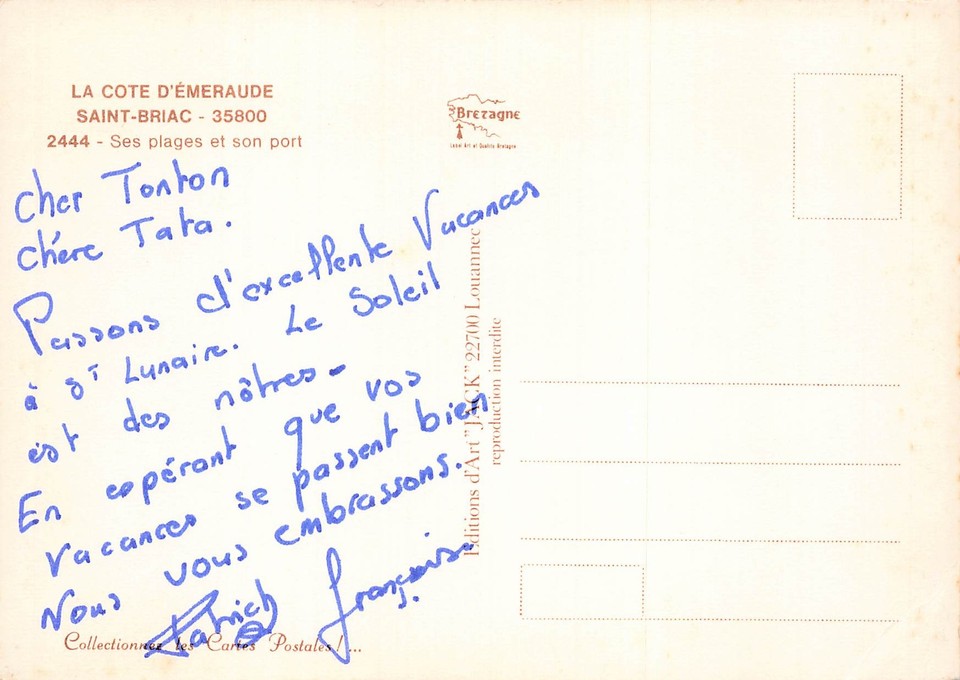 LA COTE D'ÉMERAUDE
SAINT-BRIAC - 35800
2444 - Ses plages et son port
Bretagne
Label Art et Qualité Bretagne
Cher Tonton
Chère Tata.
Passons d'excellente Vacances
à St Lunaire. Le Soleil
est des nôtres.
En espérant que vos
Vacances se passent bien
Nous vous embrassons.
Patrick Françoise.
Editions d'Art "JACK" 22700 Louannec
reproduction interdite
Collectionnez les Cartes Postales ! ...